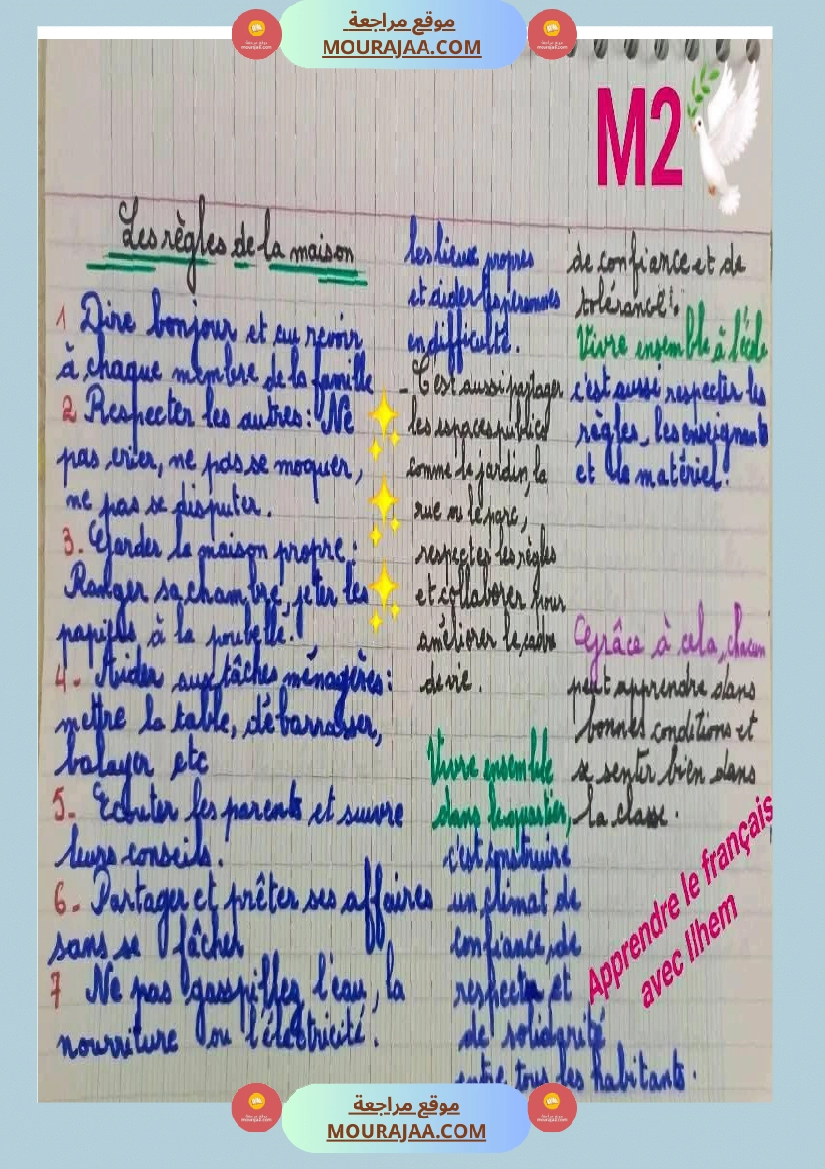 موقع مراجعة
MOURAJAA.COM
M2
Les règles de la maison
1 Dire bonjour et au revoir
à chaque membre de la famille
2 Respecter les autres: Ne
pas crier, ne pas se moquer,
ne pas se disputer.
3. Garder la maison propre:
Ranger sa chambre, jeter les
papiers à la poubelle.
4. Aider aux tâches ménagères:
mettre la table, débarrasser,
balayer etc
5. Ecouter les parents et suivre
leurs conseils.
6. Partager et prêter ses affaires
sans se fâcher
7 Ne pas gasspiller l'eau, la
nourriture ou l'électricité.
les lieux propres
et aider les personnes
en difficulté.
- C'est aussi partager
les espaces publics
comme le jardin, la
rue ou le parc,
respecter les règles
et collaborer pour
améliorer le cadre
de vie.
Vivre ensemble
dans le quartier,
c'est construire
un climat de
confiance, de
respect et
de solidarité
entre tous les habitants.
de confiance et de
tolérance.
Vivre ensemble à l'école
c'est aussi respecter les
règles, les enseignants
et le matériel.
Grâce à cela, chacun
peut apprendre dans
bonnes conditions et
se sentir bien dans
la classe.
Apprendre le français
avec Ilhem
موقع مراجعة
MOURAJAA.COM